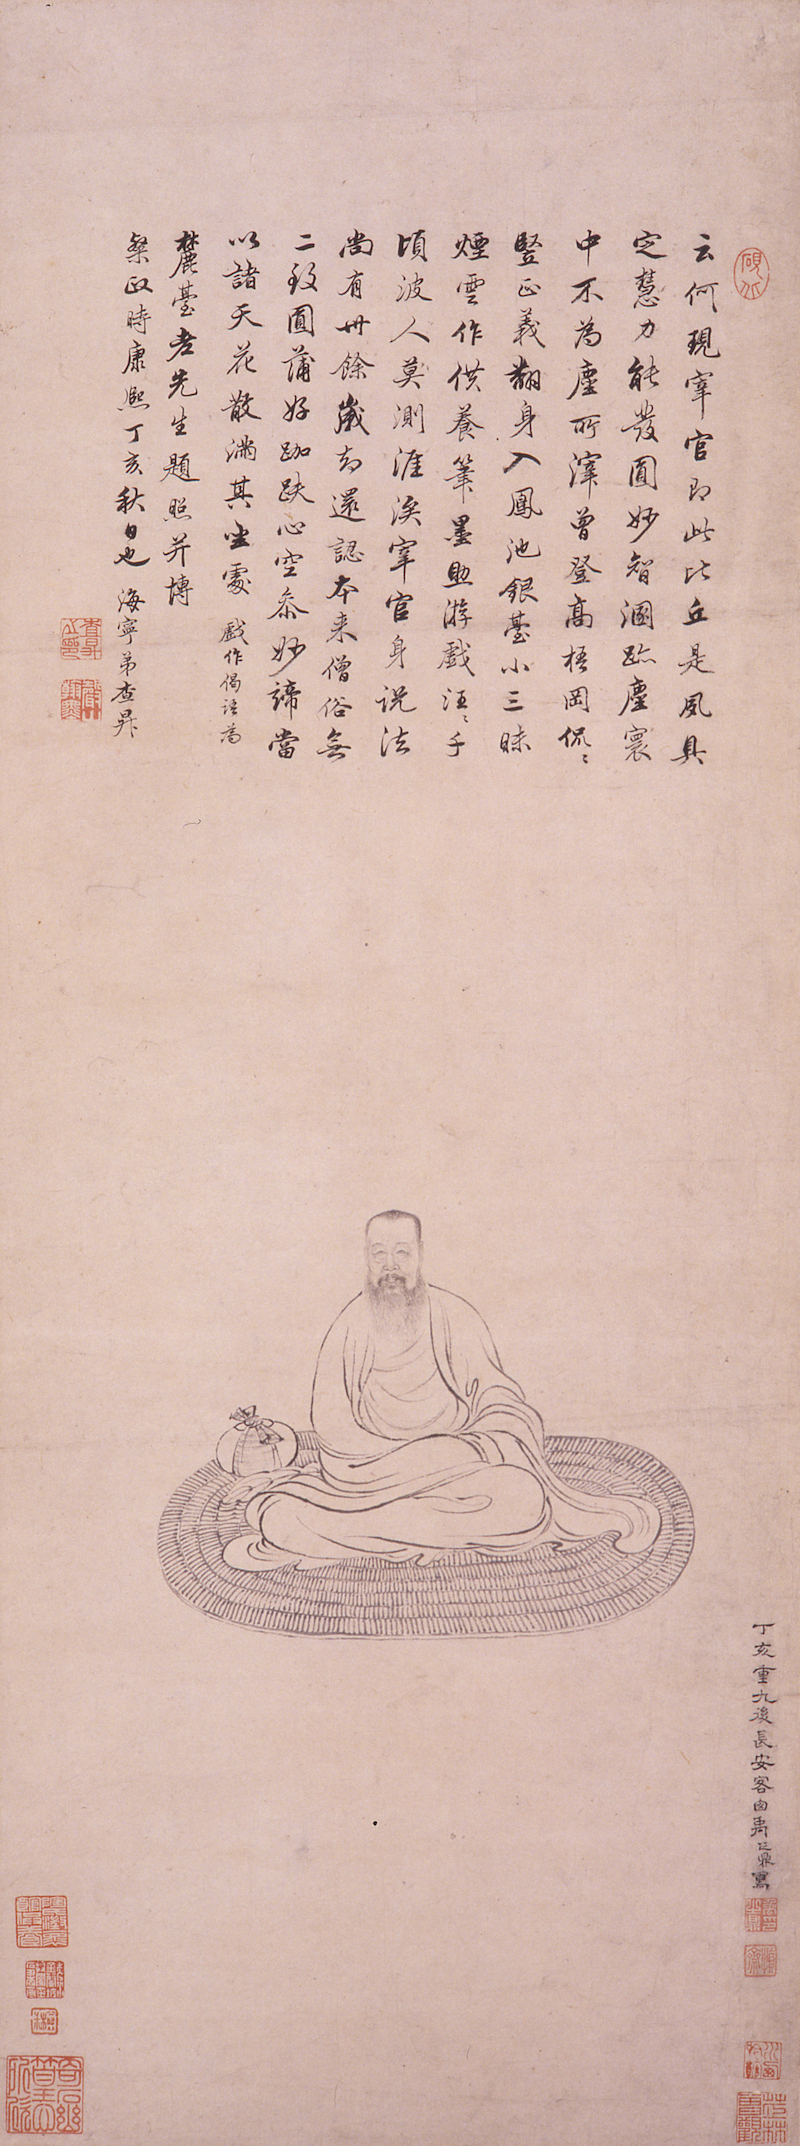 云何現宰官即此比丘是夙具
定慧力能發圓妙智溷跡塵寰
中不為塵所滓曾登高梧岡侃〻
豎正義翻身入鳳池銀臺小三昧
煙雲作供養筆墨恣游戲汪〻千
頃波人莫測涯涘宰官身說法
尚有卅餘歲却還認本来僧俗無
二致圓蒲好跏趺心空叅妙諦當
以諸天花散滿其坐處 戲作偈語為
麓臺老先生題照并博
粲政時康熙丁亥秋日也 海寧弟查昇
丁亥重九後長安客囪禹之鼎寫